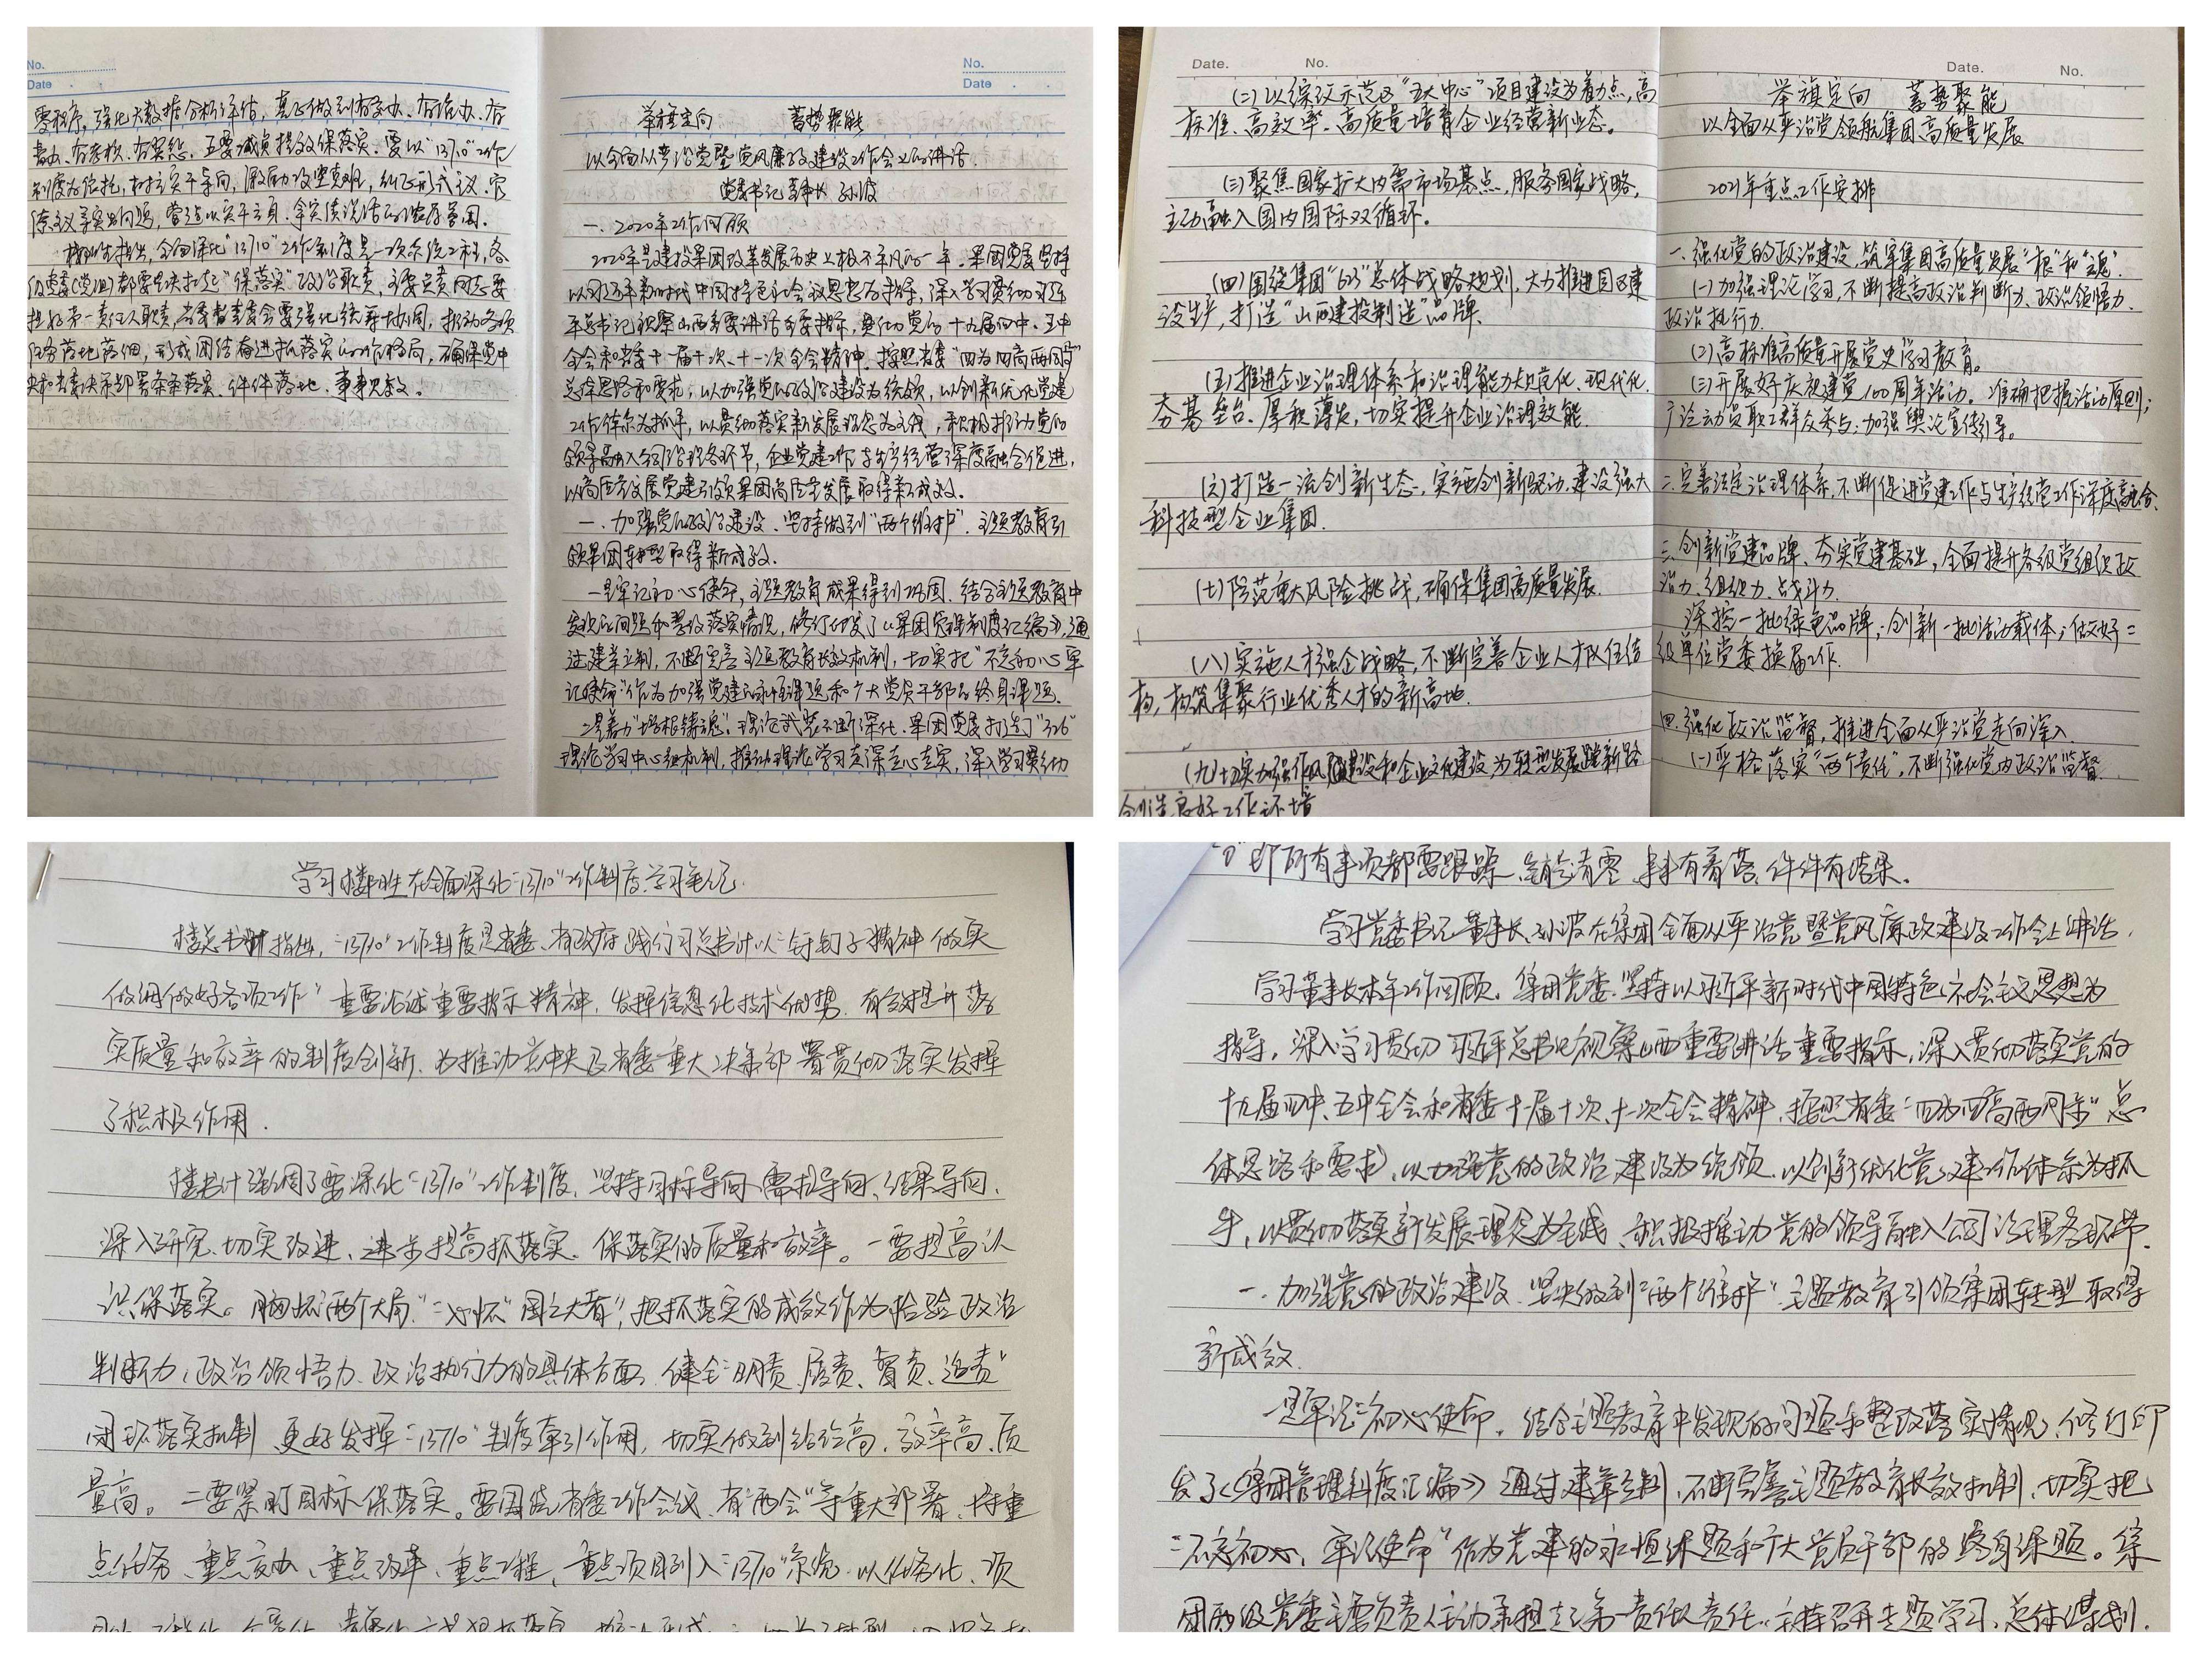 No.
Date
零程序，强化大数据分析评估，真正做到有交办、有活办、有
督办、有考核、有奖惩。五要减负提效保落实。要以"13710"工作
制度为依托，树立实干导向，激励攻坚克难，纠正形式主义、官
僚主义等突出问题，营造以实干立身、拿实绩说话的浓厚氛围。
楼阳生指出，全面深化"13710"工作制度是一次系统工程，各
级党委（党组）都要坚决扛起"保落实"政治职责，主要负责同志要
担好第一责任人职责，省委督查委会要强化统筹协同，推动各项
任务落地落细，形成团结奋进抓落实的工作格局，确保党中
央和省委决策部署条条落实、件件落地、事事见效。
No.
Date
举旗定向 蓄势聚能
以全面从严治党暨党风廉政建设工作会上的讲话
党委书记董事长 孙波
一、2020年工作回顾
2020年是建投集团改革发展历史上极不平凡的一年，集团党委坚持
以习近平新时代中国特色社会主义思想为指导，深入学习贯彻习近
平总书记视察山西重要讲话重要指示，贯彻党的十九届四中、五中
全会和省委十一届十次、十一次全会精神，按照省委"四为四高两同步"
总体思路和要求，以加强党的政治建设为统领，以创新优化党建
工作体系为抓手，以贯彻落实新发展理念为主线，积极推动党的
领导融入公司治理各环节，企业党建工作与生产经营深度融合促进，
以高质量发展党建引领集团高质量发展取得新成效。
一、加强党的政治建设，坚持做到"两个维护"，主题教育引
领集团转型取得新成效。
一是牢记初心使命，主题教育成果得到巩固。结合主题教育中
发现的问题和整改落实情况，修订印发了《集团党建制度汇编》，通
过建章立制，不断完善主题教育长效机制，切实把"不忘初心 牢
记使命"作为加强党建的永恒课题和广大党员干部的终身课题。
二是着力"培根铸魂"，理论武装不断深化。集团党委打造了"326"
理论学习中心组机制，推动理论学习走深走心走实，深入学习贯彻
Date. No.
（二）以综改示范区"五大中心"项目建设为着力点，高
标准、高效率、高质量培育企业经营新业态。
（三）聚焦国家扩大内需市场基点，服务国家战略，
主动融入国内国际双循环。
（四）围绕集团"623"总体战略规划，大力推进园区建
设生产，打造"山西建投制造"品牌。
（五）推进企业治理体系和治理能力大规范化、现代化
夯基垒台、厚积薄发，切实提升企业治理效能。
（六）打造一流创新生态，实施创新驱动，建设强大
科技型企业集团.
（七）防范重大风险挑战，确保集团高质量发展.
（八）实施人才强企战略，不断完善企业人才队伍结
构，构筑集聚行业优秀人才的新高地.
（九）切实加强作风建设和企业文化建设，为转型发展蹚新路
创造良好工作环境
Date. No.
举旗定向 蓄势聚能
以全面从严治党领航集团高质量发展
2021年重点工作安排
一.强化党的政治建设，筑牢集团高质量发展"根"和"魂".
（一）加强理论学习，不断提高政治判断力、政治领悟力、
政治执行力.
（2）高标准高质量开展党史学习教育。
（三）开展好庆祝建党100周年活动。准确把握活动原则；
广泛动员职工群众参与；加强舆论宣传引导。
二.完善法定治理体系，不断促进党建工作与生产经营工作深度融合.
三.创新党建品牌、夯实党建基础，全面提升各级党组织政
治力、组织力、战斗力.
深挖一批绿色品牌；创新一批活动载体；做好二
级单位党委换届工作.
四.强化政治监督，推进全面从严治党走向深入.
（一）严格落实"两个责任"，不断强化党内政治监督.
学习楼阳生在全面深化"13710"工作制度学习笔记.
楼总书计指出，"13710"工作制度是省委、省政府践行习总书计以"钉钉子精神做实
做细做好各项工作"重要论述重要指示精神，发挥信息化技术优势，有效提升落
实质量和效率的制度创新，为推动党中央及省委重大决策部署贯彻落实发挥
了积极作用.
楼书计强调了要深化"13710"工作制度，坚持目标导向、需求导向、结果导向，
深入研究、切实改进，进步提高抓落实、保落实的质量和效率。一要提高认
识保落实。胸怀"两个大局"心怀"国之大者"，把抓落实的成效作为检验政治
判断力、政治领悟力、政治执行力的具体方面，健全"明责、履责、督责、追责"
闭环落实机制，更好发挥"13710"制度牵引作用，切实做到站位高、效率高、质
量高。二要紧盯目标保落实。要围绕省委工作会议、省"两会"等重大部署，将重
点任务、重点交办、重点改革、重点工程、重点项目列入"13710"系统，以任务化、项
即所有事项都要跟踪、销号清零，事事有着落，件件有结果。
学习党委书记董事长、孙波在集团全面从严治党暨党风廉政建设工作会上讲话.
学习董事长本年工作回顾，集团党委坚持以习近平新时代中国特色社会主义思想为
指导，深入学习贯彻习近平总书记视察山西重要讲话重要指示，深入贯彻落实党的
十九届四中、五中全会和省委十一届十次、十一次全会精神，按照省委"四为四高两同步"总
体思路和要求，以加强党的政治建设为统领，以创新优化党建工作体系为抓
手，以贯彻落实新发展理念为主线，积极推动党的领导融入公司治理各环节.
一、加强党的政治建设，坚决做到"两个维护"主题教育引领集团转型取得
新成效.
一是牢记"初心使命，结合主题教育中发现的问题和整改落实情况，修订印
发了《集团管理制度汇编》通过建章立制，不断完善主题教育长效机制，切实把
"不忘初心、牢记使命"作为党建的永恒课题和广大党员干部的终身课题。集
团两级党委主要负责人主动承担起第一责任人责任，主持召开专题学习、总体谋划.